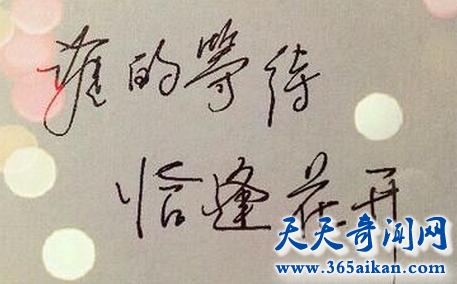 谁的等待
恰逢花开
天天奇闻网
www.365aikan.com